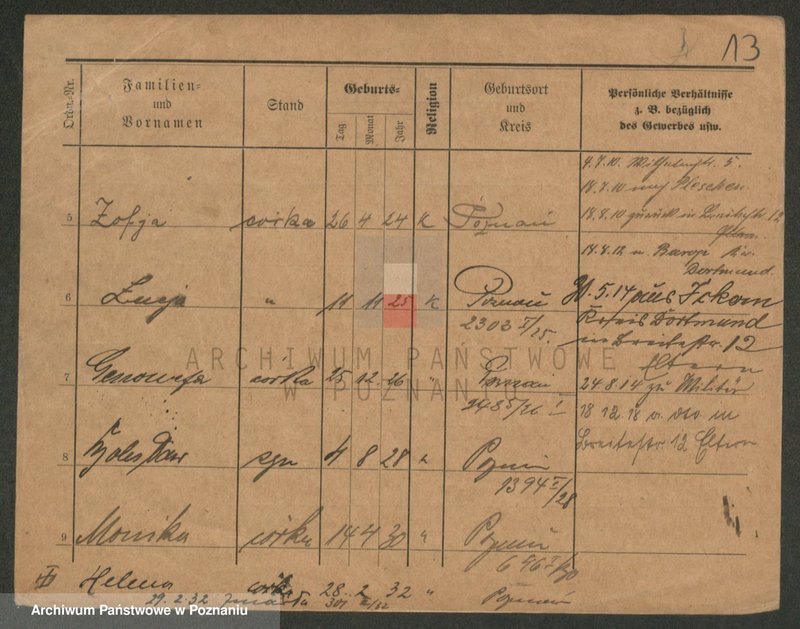 13
Ordn.-Nr.
Familien-
und
Vornamen
Stand
Geburts-
Tag
Monat
Jahr
Religion
Geburtsort
und
Kreis
Persönliche Verhältnisse
z. B. bezüglich
des Gewerbes usw.
4.7.10. Wilhelmstr. 5.
18.7.10 nach Pleschen
18.8.10 zurück in Breitestr. 12
Eltern.
5 Zofja córka 26 4 24 K Poznań
18.8.12 n. Barop Kr.
Dortmund.
6 Lucja " 11 11 25 K Poznań
2303 I/25.
5.14 aus
Kreis Dortmund
in Breitestr. 12
Eltern
7 Genowefa córka 25 12 26 " Poznań
24.8.14 zu Militär
18 12 18 v. dto in
Breitestr. 12 Eltern
8 Bolesław syn 4 8 28 " Poznań
1394 I/28
9 Monika córka 14 4 30 " Poznań
696 I/30
Helena córka 28 2 32 " Poznań
29.2.32 zmarła 301 /32
ARCHIWUM PAŃSTWOWE
W POZNANIU
Archiwum Państwowe w Poznaniu